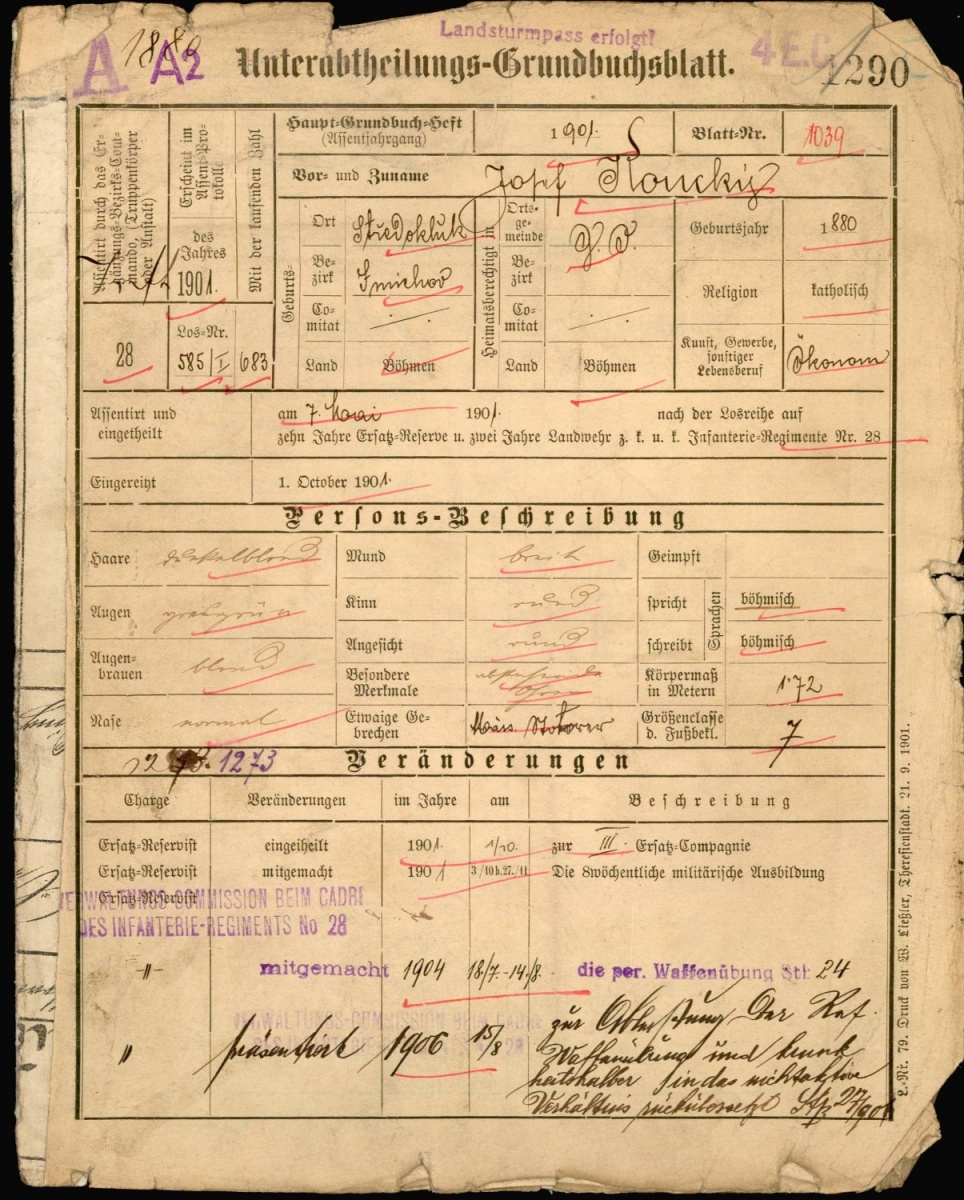 Landsturmpass erfolgt?
A 188 A2
Unterabtheilungs-Grundbuchsblatt.
4 E.C.
1290
Assentirt durch das Ergänzungs-Bezirks-Commando, (Truppenkörper oder Anstalt)
28
Erscheint im Assent-Protokolle
des Jahres
1901.
Mit der laufenden Zahl
Los-Nr.
585/I/683
Haupt-Grundbuch-Heft
(Assentjahrgang)
1901.
Blatt-Nr.
1039
Vor- und Zuname
Josef Koucký
Geburts-
Ort
Středokluk
Bezirk
Smichov
Comitat
Land
Böhmen
Heimatsberechtigt in
Ortsgemeinde
Bezirk
Comitat
Land
Böhmen
Geburtsjahr
1880
Religion
katholisch
Kunst, Gewerbe, sonstiger Lebensberuf
Ökonom
Assentirt und
eingetheilt
am 7. Mai 1901. nach der Losreihe auf
zehn Jahre Ersatz-Reserve u. zwei Jahre Landwehr z. k. u. k. Infanterie-Regimente Nr. 28
Eingereiht
1. October 1901.
Persons-Beschreibung
Haare dunkelblond
Mund breit
Geimpft
Augen graugrün
Kinn rund
Sprachen
spricht böhmisch
Angesicht rund
schreibt böhmisch
Augenbrauen blond
Besondere Merkmale abstehende Ohren
Körpermaß in Metern 1·72
Nase normal
Etwaige Gebrechen
Größenclasse d. Fußbekl. 7
1273
Veränderungen
Charge Veränderungen im Jahre am Beschreibung
Ersatz-Reservist eingeiheilt 1901. 1/10. zur III. Ersatz-Compagnie
Ersatz-Reservist mitgemacht 1901 3/10 b. 27./11. Die 8wöchentliche militärische Ausbildung
Ersatz-Reservist
VERWALTUNGS-COMMISSION BEIM CADRE
DES INFANTERIE-REGIMENTS No 28
-"- mitgemacht 1904 18/7.-14./8. die per. Waffenübung Stb 24
VERWALTUNGS-COMMISSION BEIM CADRE
" präsentiert 1906 15/8
zur Ableistung der Res.
Waffenübung und krank
heitshalber in das nichtaktive
Verhältnis rückübersetzt
L.-Nr. 79. Druck von W. Ließler, Theresienstadt. 21. 9. 1901.